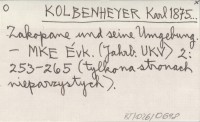 KOLBENHEYER Karl 1875...
Zakopane und seine Umgebung.
– MKE Évk. (Jahrb. UKV) 2:
253-265 (tylko na stronach
nieparzystych).